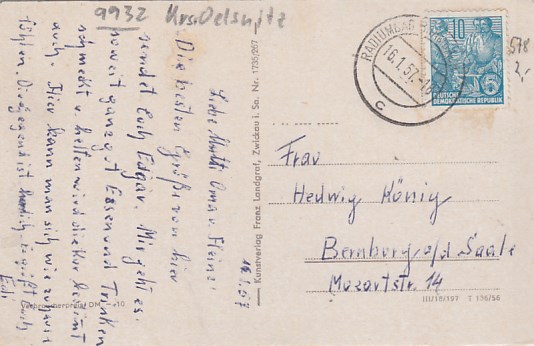 9932 Krs. Oelsnitz
16.1.57
Liebe Mutti Oma u. Heinz!
Die besten Grüße von hier
sendet Euch Edgar. Mir geht es
soweit ganz gut Essen und Trinken
schmeckt u. helfen wird die Kur bestimmt
auch. Hier kann man sich wie zuhause
fühlen. Die Gegend ist herrlich es grüßt Euch
Edi
Verbraucherpreis DM -,10
Kunstverlag Franz Landgraf, Zwickau i. Sa. Nr. 1735/267
RADIUMBAD
16.1.57.-10
c
10
5
DEUTSCHE
DEMOKRATISCHE REPUBLIK
578
2,-
Frau
Hedwig König
Bernburg a/d Saale
Mozartstr. 14
III/18/197 T 136/56